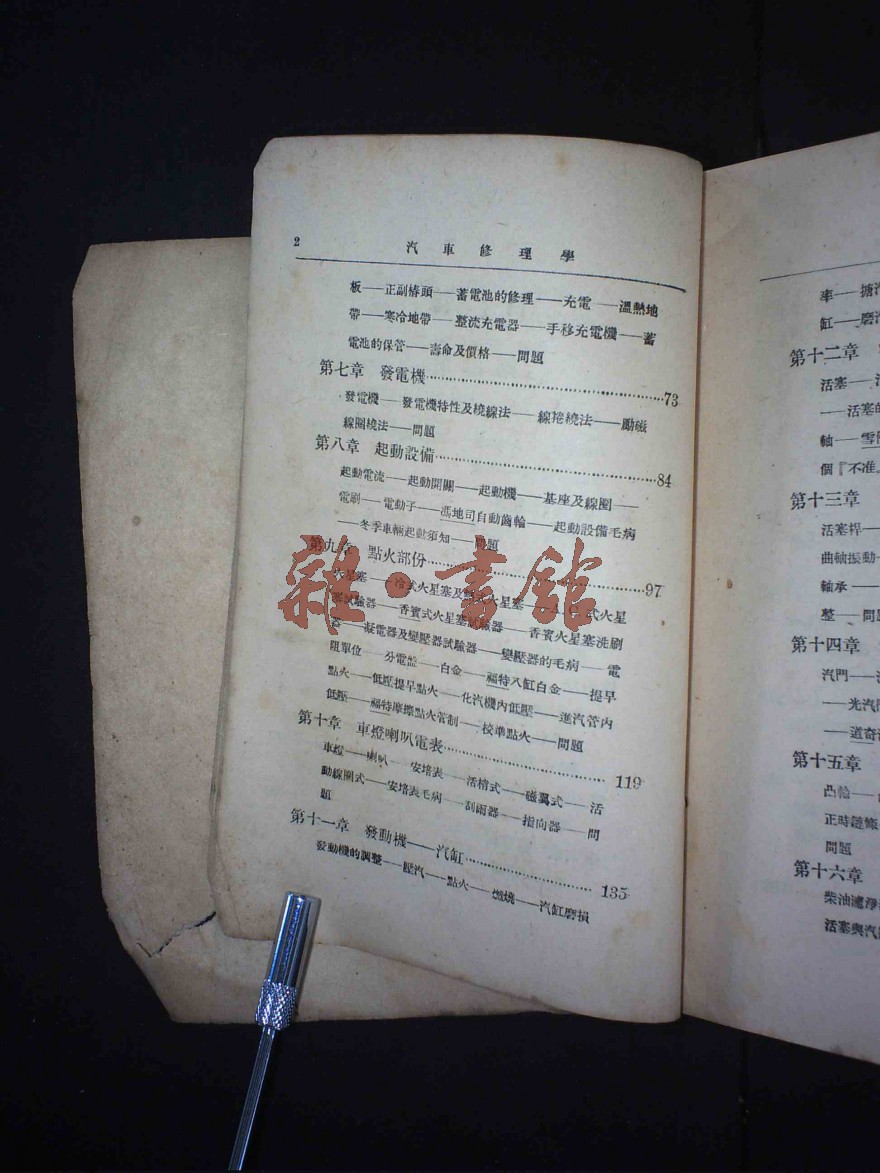 2
汽車修理學
板——正副樁頭——蓄電池的修理——充電——溫熱地
帶——寒冷地帶——整流充電器——手移充電機——蓄
電池的保管——壽命及價格——問題
第七章 發電機……73
發電機——發電機特性及繞線法——線捲繞法——勵磁
線圈繞法——問題
第八章 起動設備……84
起動電流——起動開關——起動機——基座及線圈——
電刷——電動子——馮地司自動齒輪——起動設備毛病
——冬季車輛起動須知——問題
第九章 點火部份……97
火星塞——冷式火星塞及熱式火星塞——式火星
塞試驗器——香賓式火星塞試驗器——香賓火星塞洗刷
器——凝電器及變壓器試驗器——變壓器的毛病——電
阻單位——分電盤——白金——福特八缸白金——提早
點火——低壓提早點火——化汽機內低壓——進汽管內
低壓——福特摩擦點火管制——校準點火——問題
第十章 車燈喇叭電表……119
車燈——喇叭——安培表——活楷式——磁翼式——活
動線圈式——安培表毛病——刮雨器——指向器——問
題
第十一章 發動機——汽缸……135
發動機的調整——壓汽——點火——燃燒——汽缸磨損
雜·書館
率——搪汽
缸——磨汽
第十二章
活塞——
——活塞的
軸——雪
個『不准
第十三章
活塞桿——
曲軸振動
軸承——
整——問
第十四章
汽門——
——光汽門
——道奇
第十五章
凸輪——
正時鏈條
問題
第十六章
柴油濾淨
活塞與汽